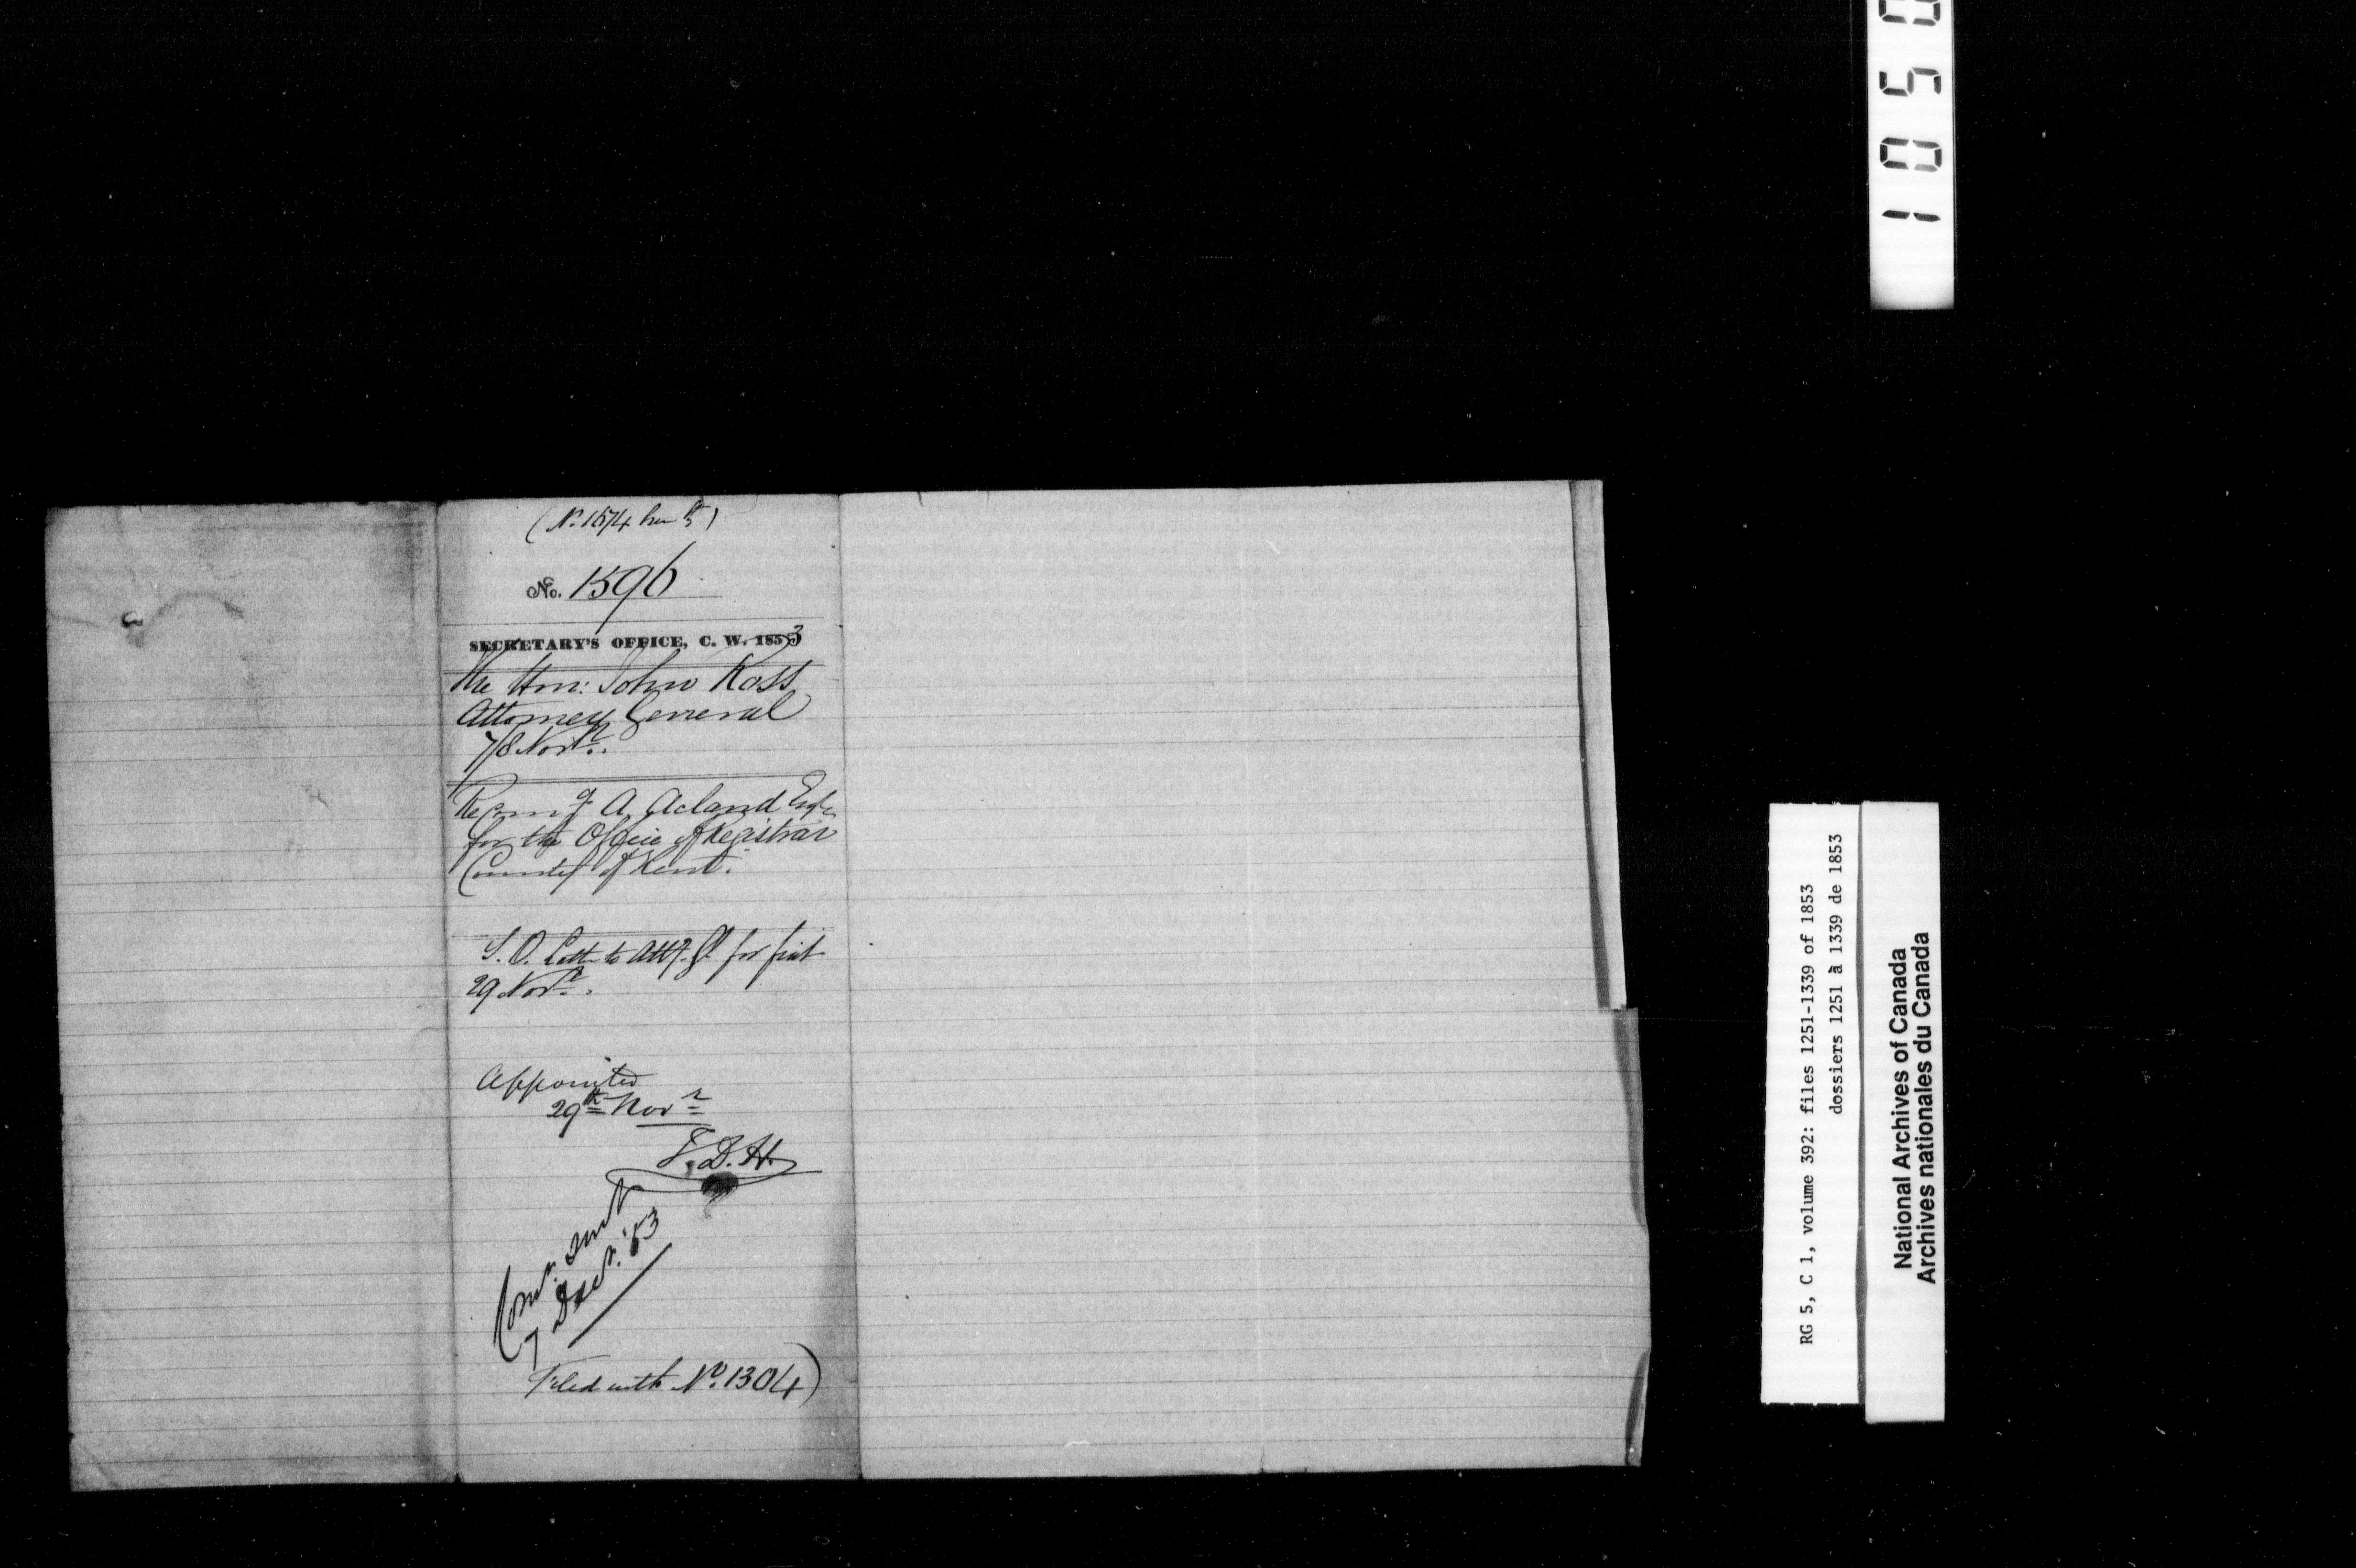 (No. 1574 )
No. 1596
SECRETARY'S OFFICE, C. W. 1853
The Hon: John Ross
Attorney General
7/8 Novr.
Recom.g A. Acland Esqr
for the Office of Registrar
County of Kent.
S. O. Lett. to Atty. Gl. for fiat
29 Novr.
Appointed
29th Novr
F.D.H.
Comn. sent
7 Decr. '53
Filed with No. 1304)
1050
RG 5, C 1, volume 392: files 1251-1339 of 1853
dossiers 1251 à 1339 de 1853
National Archives of Canada
Archives nationales du Canada